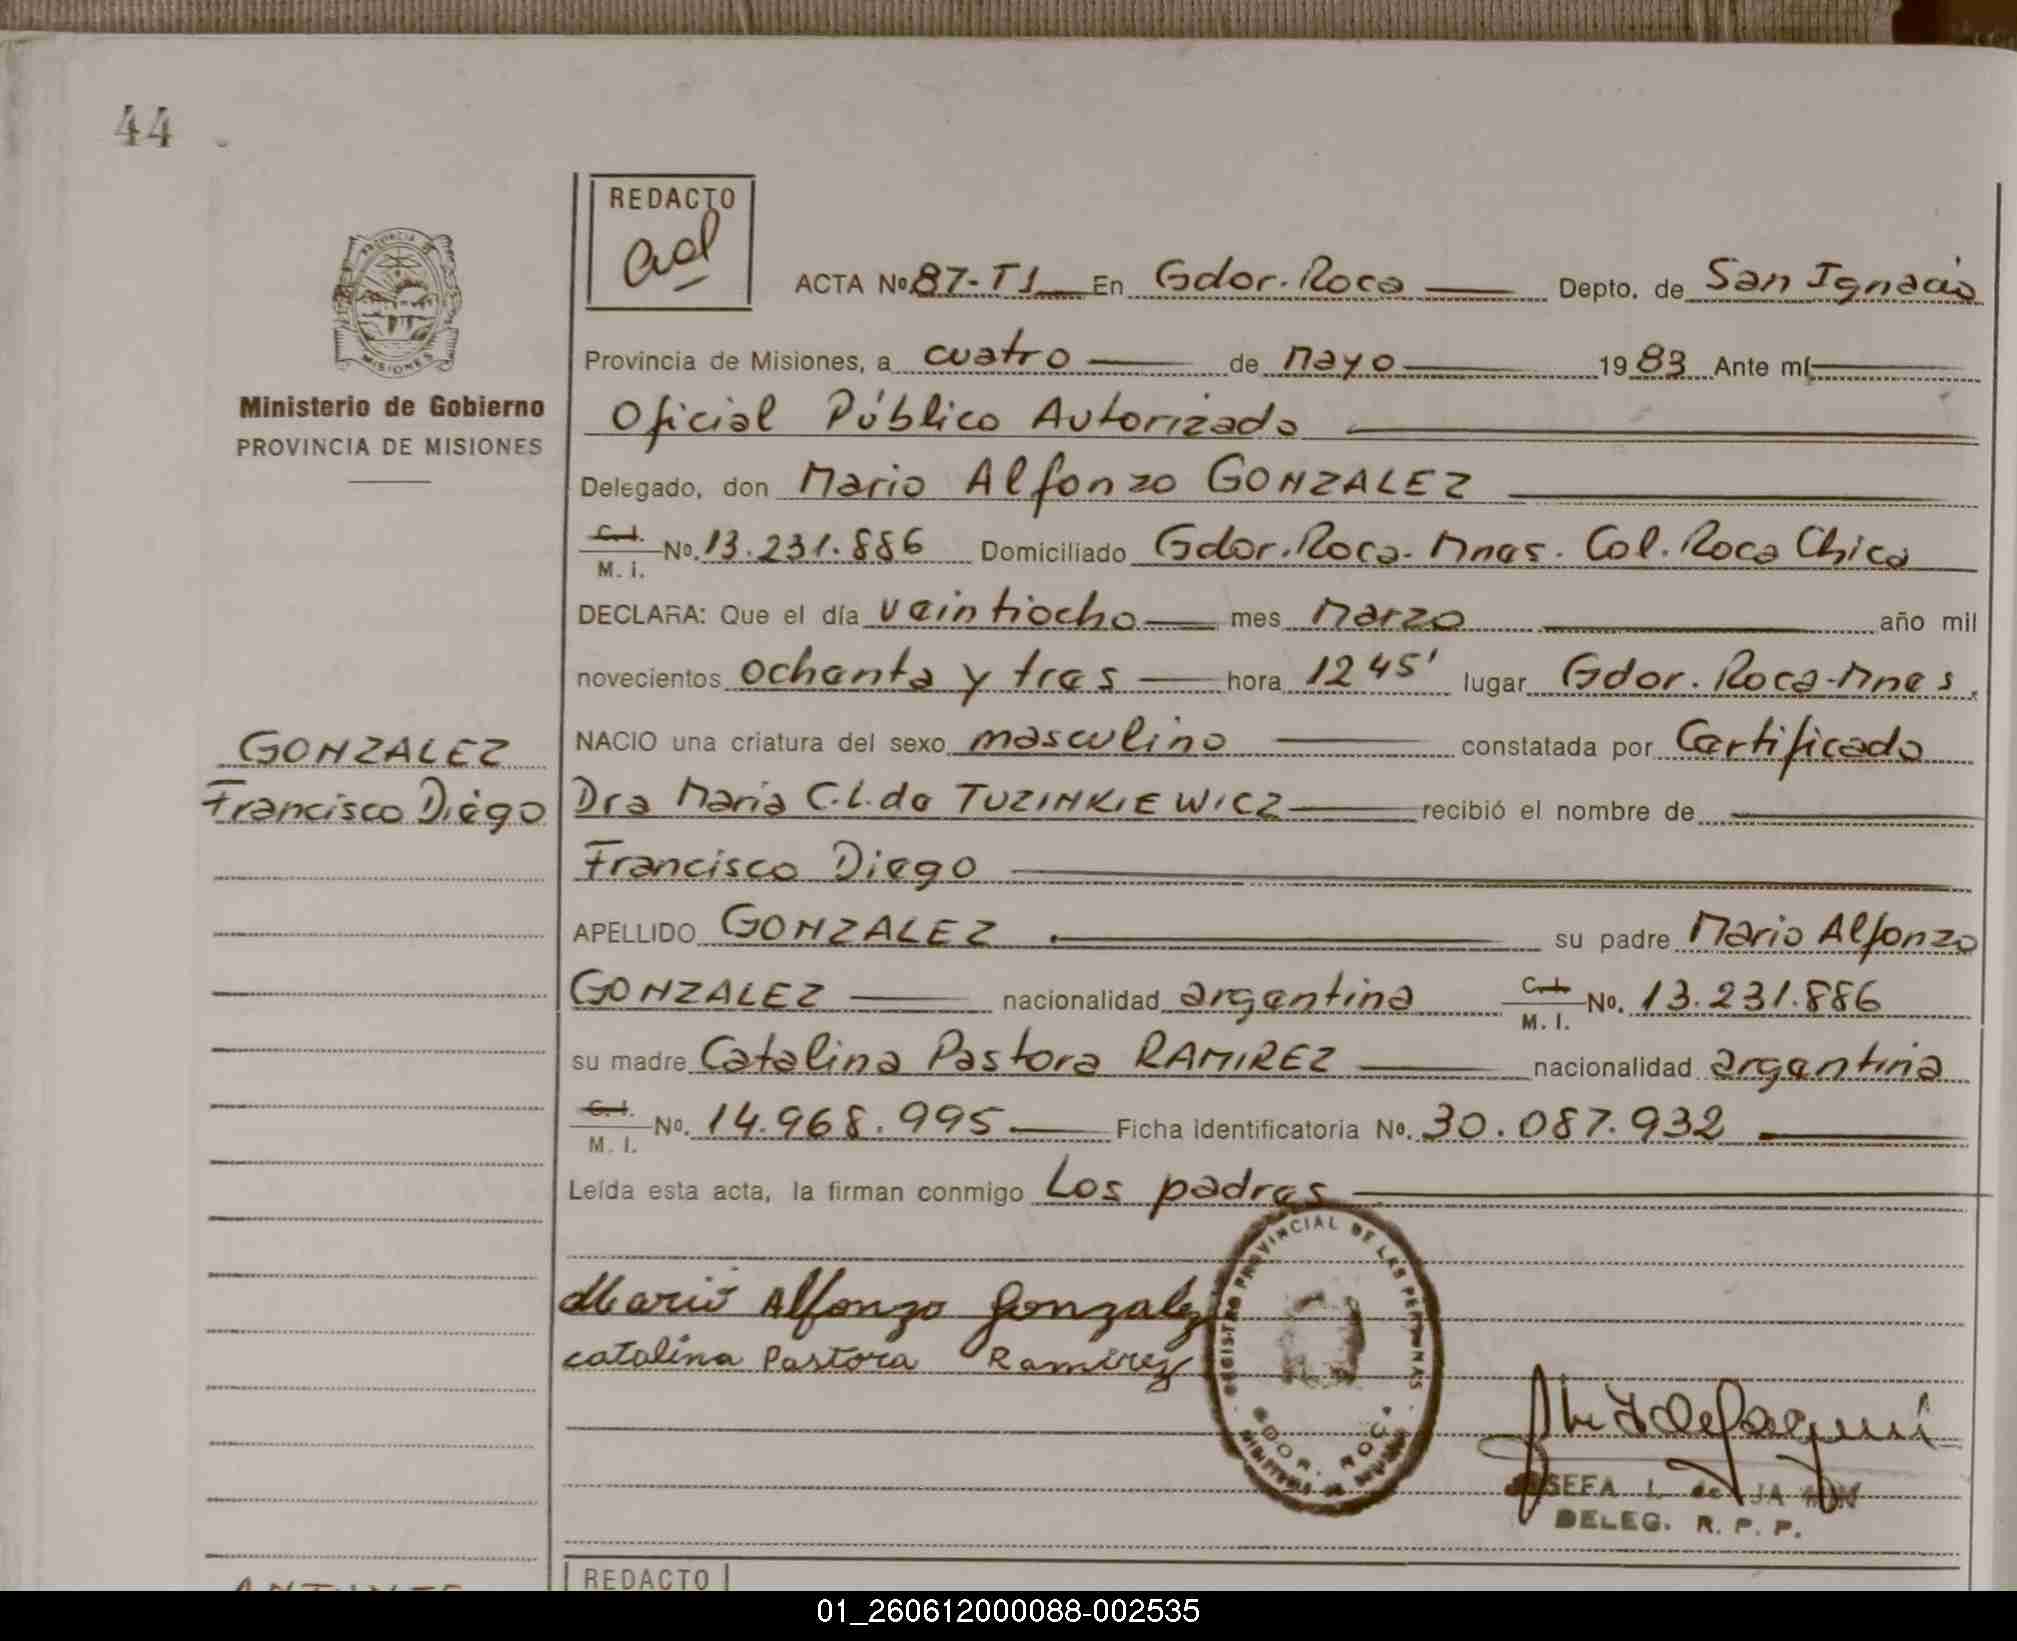 44
REDACTO
ad
PROVINCIA DE
MISIONES
Ministerio de Gobierno
PROVINCIA DE MISIONES
ACTA Nº 87-T1 En Gdor. Roca Depto. de San Ignacio
Provincia de Misiones, a cuatro de Mayo 1983 Ante mí
Oficial Público Autorizado
Delegado, don Mario Alfonzo GONZALEZ
C.I. M. I. Nº. 13.231.886 Domiciliado Gdor. Roca - Mnes. Col. Roca Chica
DECLARA: Que el día veintiocho mes Marzo año mil
novecientos ochenta y tres hora 12 45' lugar Gdor. Roca - Mnes.
GONZALEZ
Francisco Diego
NACIO una criatura del sexo masculino constatada por Certificado
Dra Maria C.L. de TUZINKIEWICZ recibió el nombre de
Francisco Diego
APELLIDO GONZALEZ su padre Mario Alfonzo
GONZALEZ nacionalidad argentina C.I. M. I. Nº. 13.231.886
su madre Catalina Pastora RAMIREZ nacionalidad argentina
C.I. M. I. Nº. 14.968.995 Ficha identificatoria Nº. 30.087.932
Leída esta acta, la firman conmigo Los padres
Mario Alfonzo Gonzalez
catalina Pastora Ramirez
REGISTRO PROVINCIAL DE LAS PERSONAS
GDOR. ROCA
JOSEFA I. de
DELEG. R. P. P.
REDACTO
01_260612000088-002535